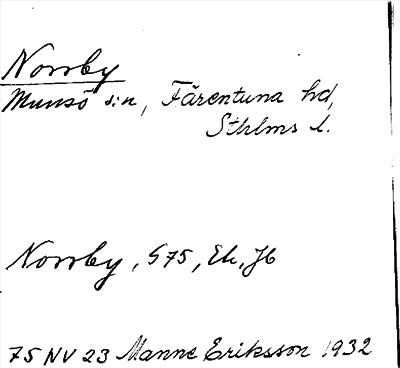 Norrby
Munsö s:n, Färentuna hd,
Sthlms l.
Norrby, S75, Ek, Jb
75 NV 23 Manne Eriksson 1932